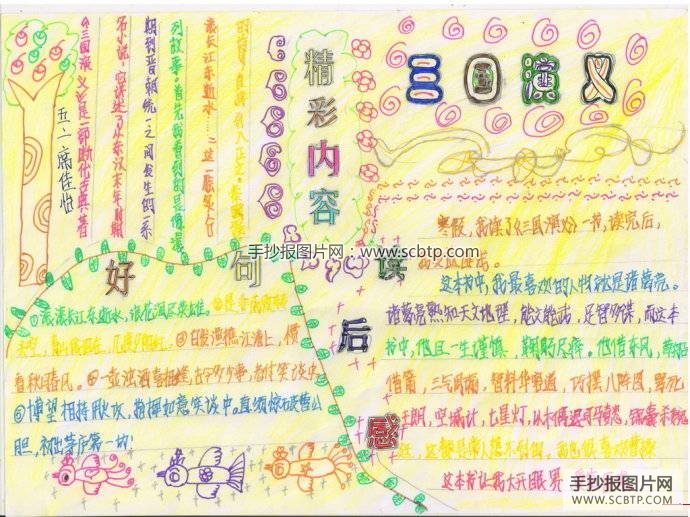 三国演义
精彩内容
《三国演义》是一部断代古典著
名小说,它讲述了从东汉末年到
期到晋朝统一之间发生的一系
列故事。首先我看到的是借滚
滚长江东逝水……这一脍炙人口
五二席佳怡
手抄报图片网:www.scbtp.com
好句
①滚滚长江东逝水,浪花淘尽英雄。②是非成败转
头空,青山依旧在,几度夕阳红。③白发渔樵江渚上,惯
看秋月春风。④一壶浊酒喜相逢,古今多少事,都付笑谈中
⑤博望相持用火攻,指挥如意笑谈中。直须惊破曹公
胆,初出茅庐第一功!
读后感
寒假,我读了《三国演义》一书,读完后,
这本书中,我最喜欢的人物就是诸葛亮。
诸葛亮熟知天文地理,能文能武,足智多谋,而这本
书中,他且一生谨慎,鞠躬尽瘁。他借东风,草船
借箭,三气周瑜,智料华容道,巧摆八阵图,
空城计,七星灯,
这本书让我大开眼界
手抄报图片网
WWW.SCBTP.COM